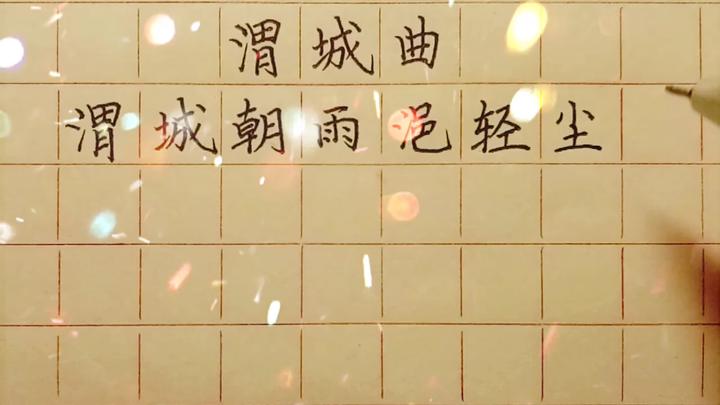 渭城曲
渭城朝雨浥轻尘